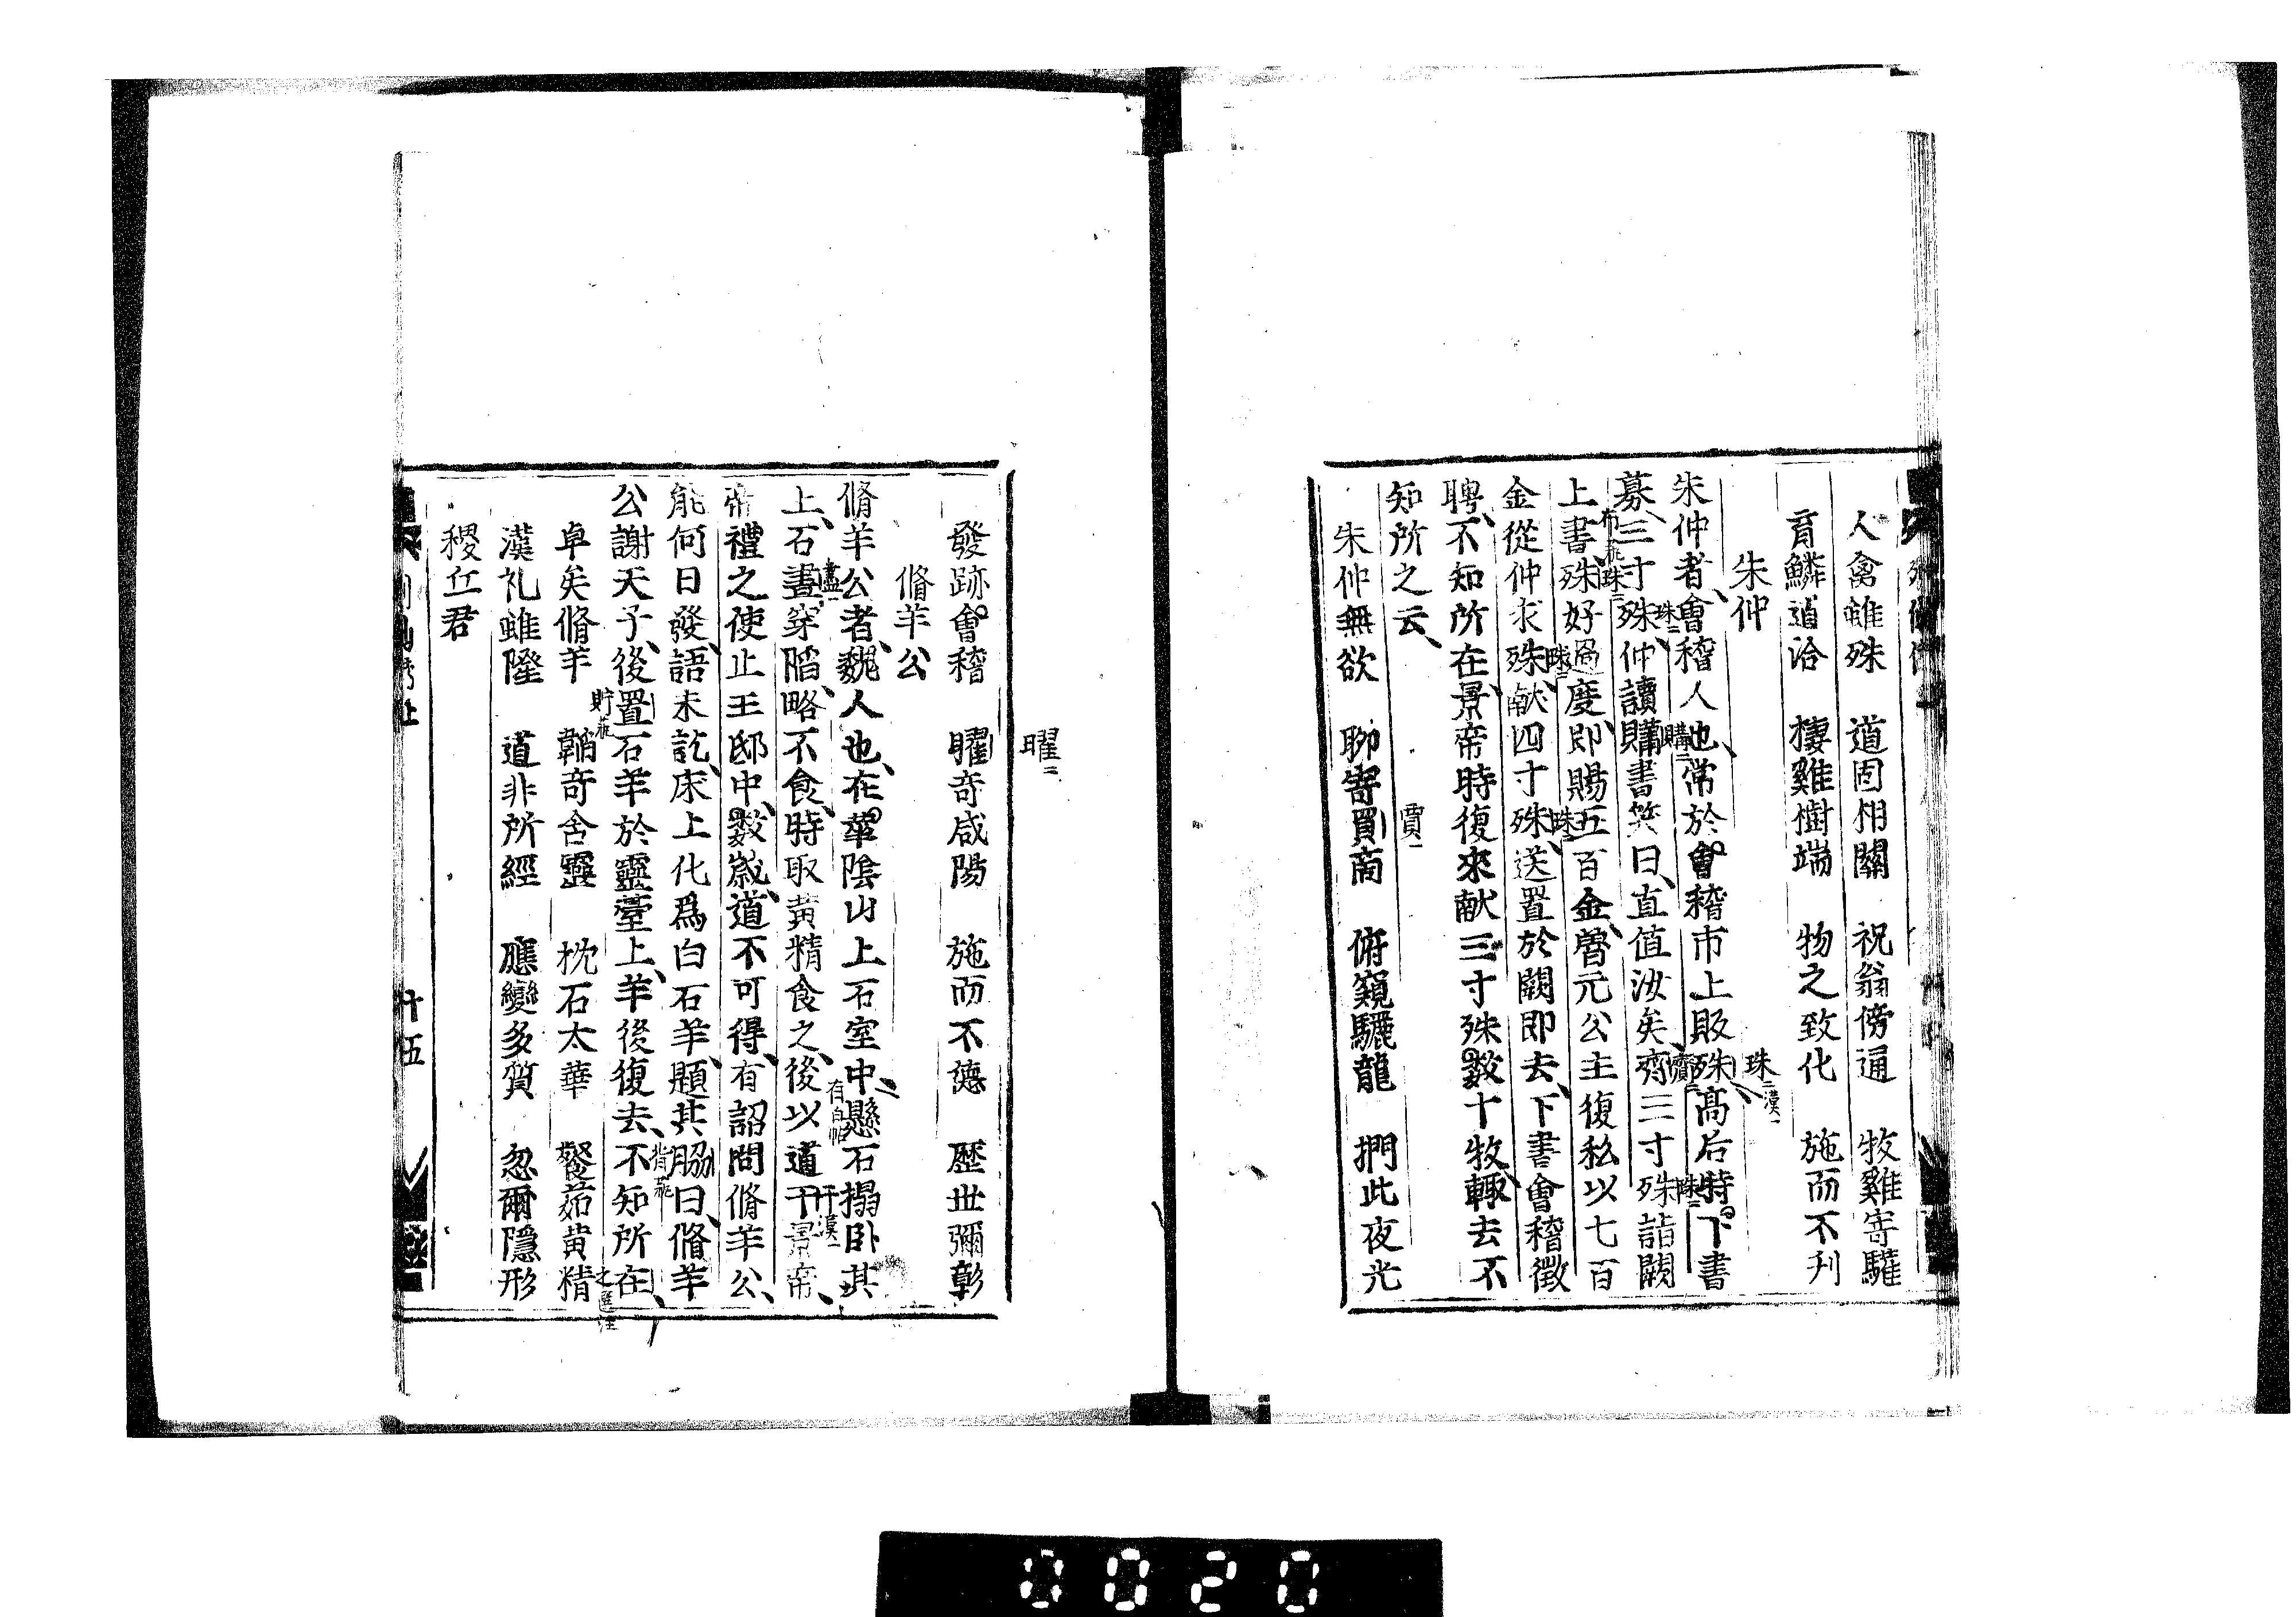 人禽雖殊　道固相關　祝翁傍通　牧雞寄驩
育鱗道洽　棲雞樹端　物之致化　施而不刋
朱仲
珠二漢一
朱仲者會稽人也常於會稽市上販殊高后時下書
募三寸殊仲讀購書笑曰直值汝矣齊三寸殊詣闕
上書殊好過度即賜五百金魯元公主復私以七百
金從仲求殊献四寸殊送置於闕即去下書會稽徵
聘不知所在景帝時復來献三寸殊數十牧輙去不
知所之云
賈一
朱仲無欲　聊寄買商　俯窺驪龍　捫此夜光
曜二
發跡會稽　曜奇咸陽　施而不德　歷世彌彰
脩羊公
脩羊公者魏人也在華陰山上石室中懸石搨卧其
上石晝穿陷略不食時取黄精食之後以道干景帝
帝禮之使止王邸中數歲道不可得有詔問脩羊公
能何日發語未訖床上化爲白石羊題其脇曰脩羊
公謝天子後置石羊於靈臺上羊後復去不知所在
卓矣脩羊　韜奇含靈　枕石太華　餐茹黄精
漢礼雖隆　道非所經　應變多質　忽爾隱形
稷丘君
十五
0020